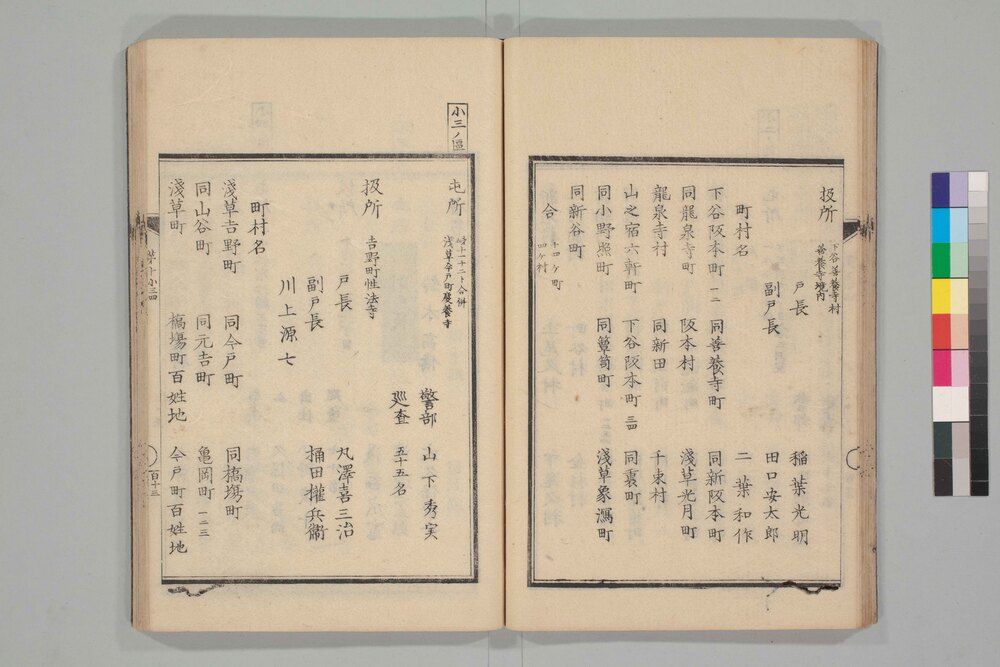 扱所 下谷善養寺村
善養寺境内
戸長 稲葉光明
副戸長 田口安太郎
二葉和作
町村名
下谷阪本町一二 同善養寺町 同新阪本町
同龍泉寺町 阪本村 淺草光月町
龍泉寺村 同新田 千束村
山之宿六軒町 下谷阪本町三四 同裏町
同小野照町 同簞笥町 淺草象潟町
同新谷町
合 十四ケ町
四ケ村
小三ノ區
屯所 十一十二ト合併
淺草今戸町慶養寺
警部 山下秀実
巡査 五十五名
扱所 吉野町性法寺
戸長 丸澤喜三治
副戸長 桶田權兵衞
川上源七
町村名
淺草吉野町 同今戸町 同橋塲町
同山谷町 同元吉町 亀岡町一二三
淺草町 橋塲町百姓地 今戸町百姓地
百十三